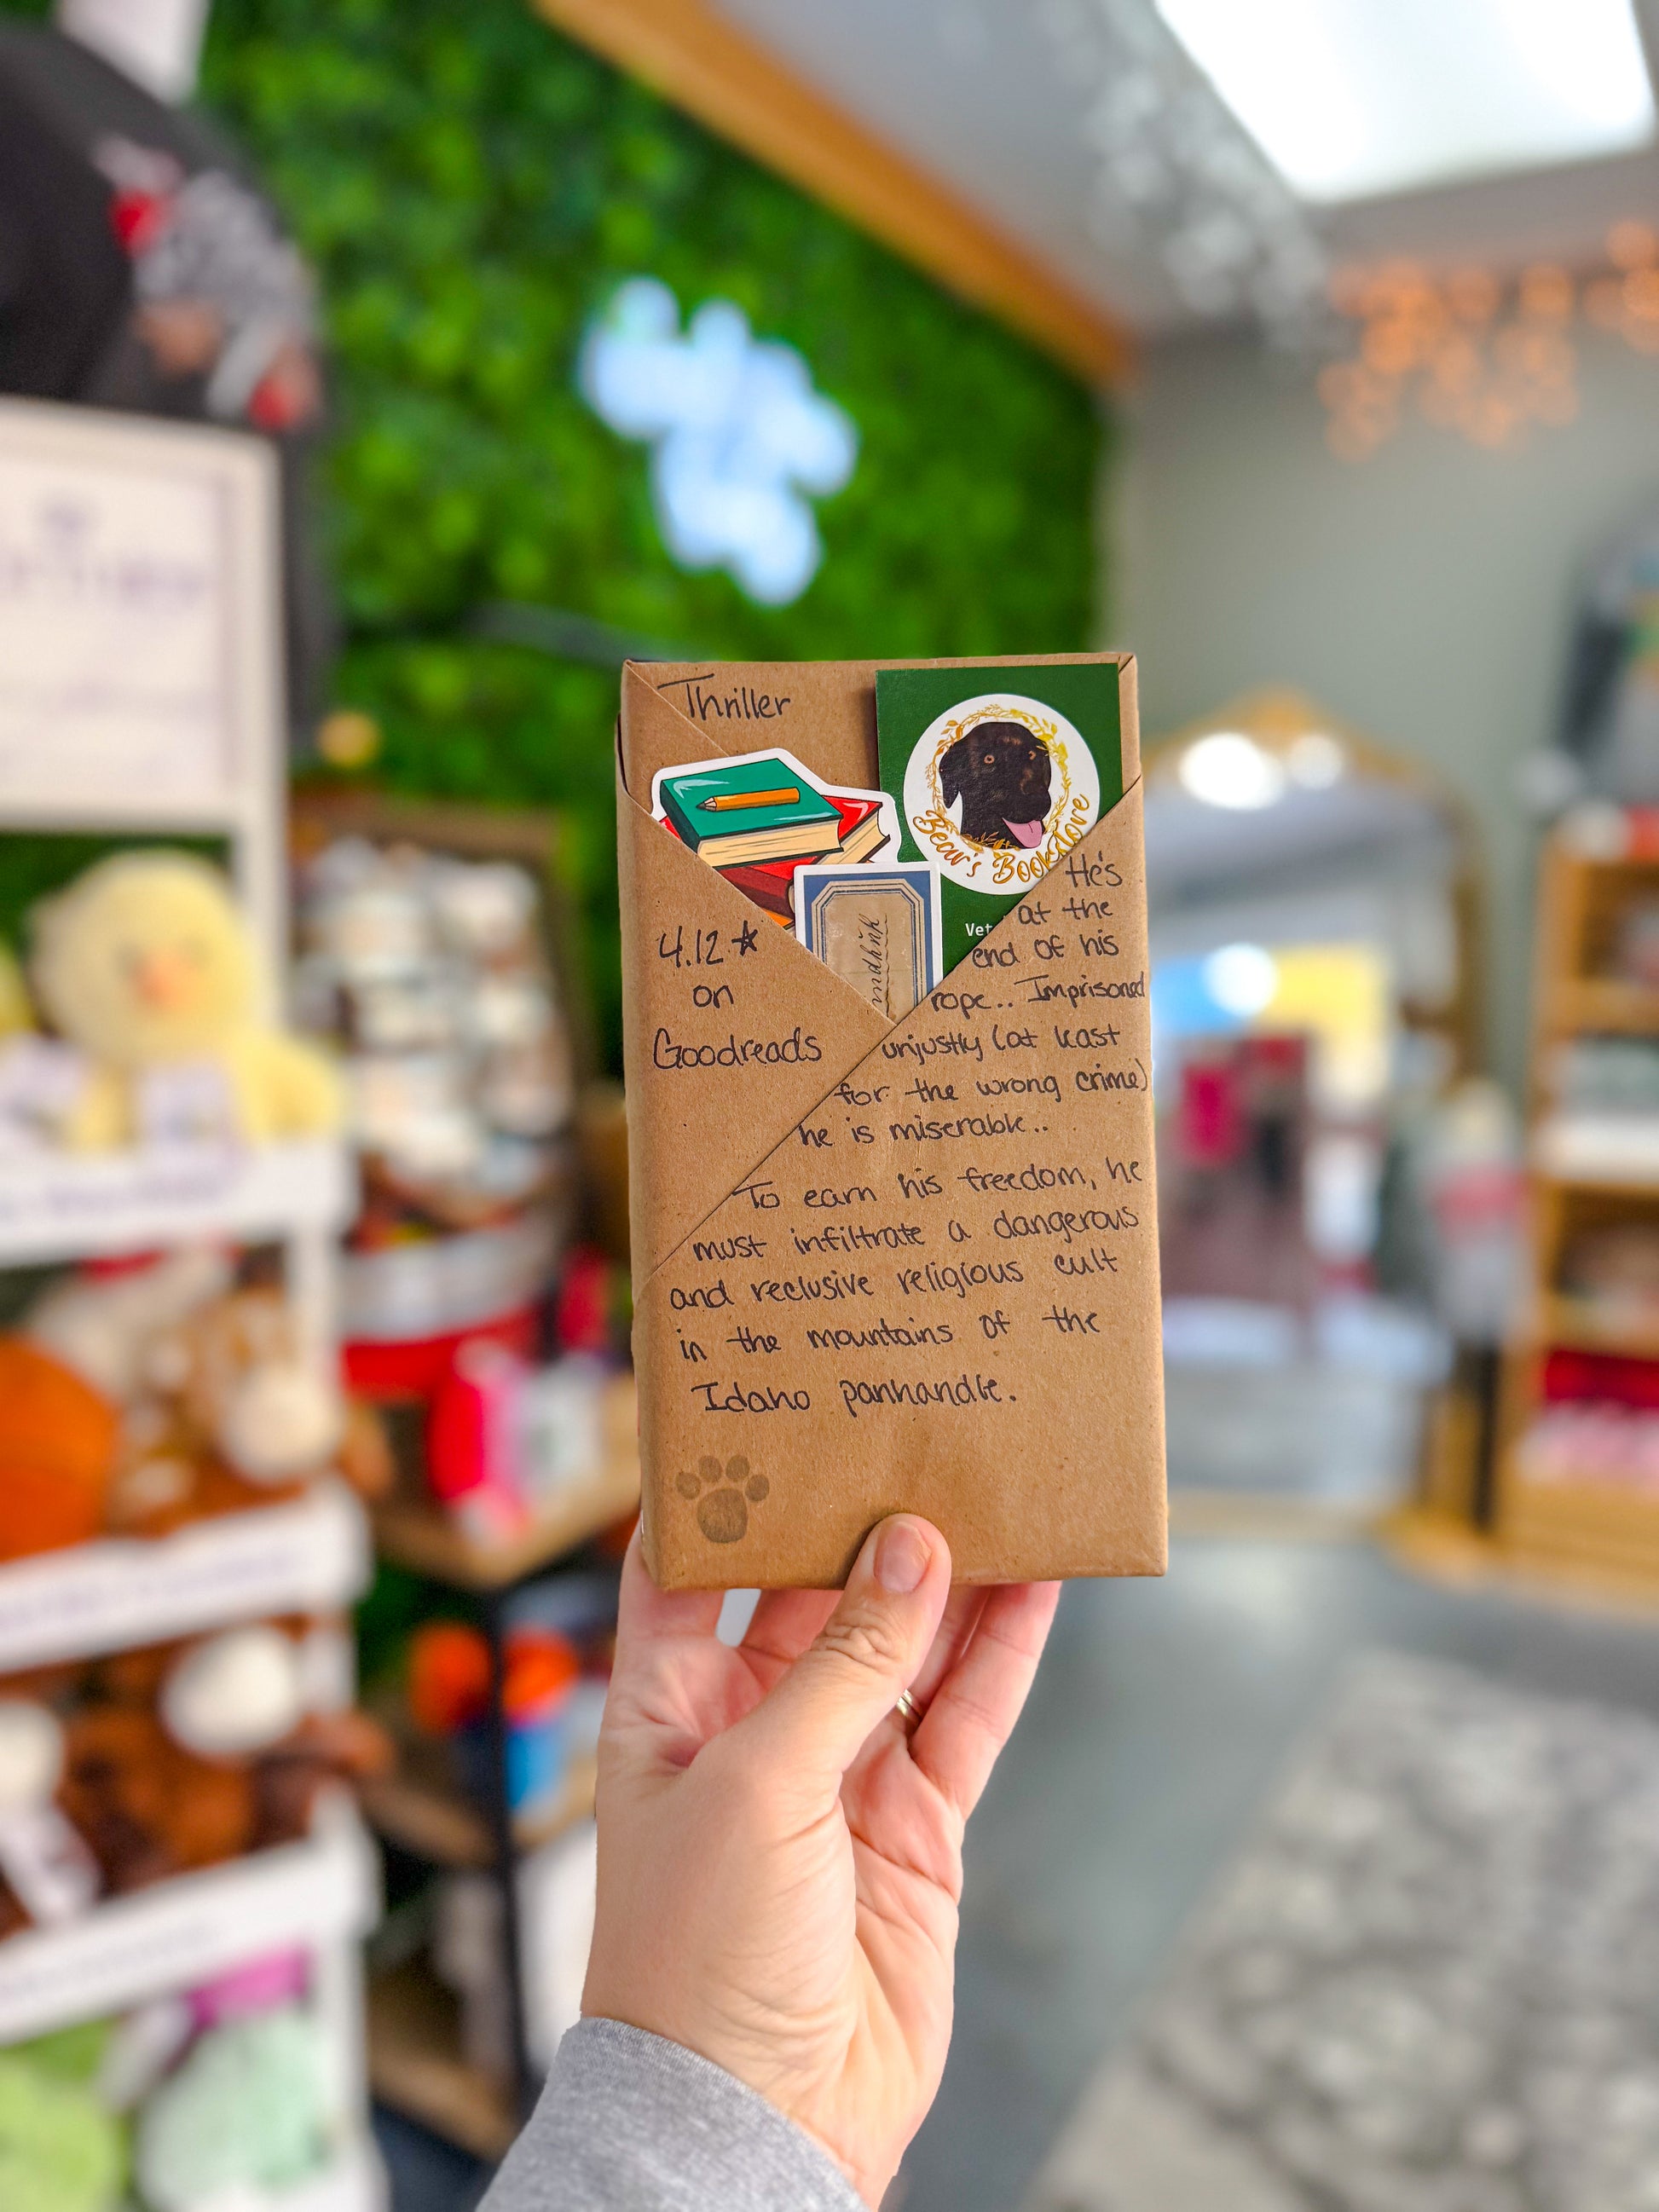 Thriller
Bear's Bookstore
Vet
4.12 ★
on
Goodreads
He's
at the
end of his
rope.. Imprisoned
unjustly (at least
for the wrong crime)
he is miserable..
To earn his freedom, he
must infiltrate a dangerous
and reclusive religious cult
in the mountains of the
Idaho panhandle.